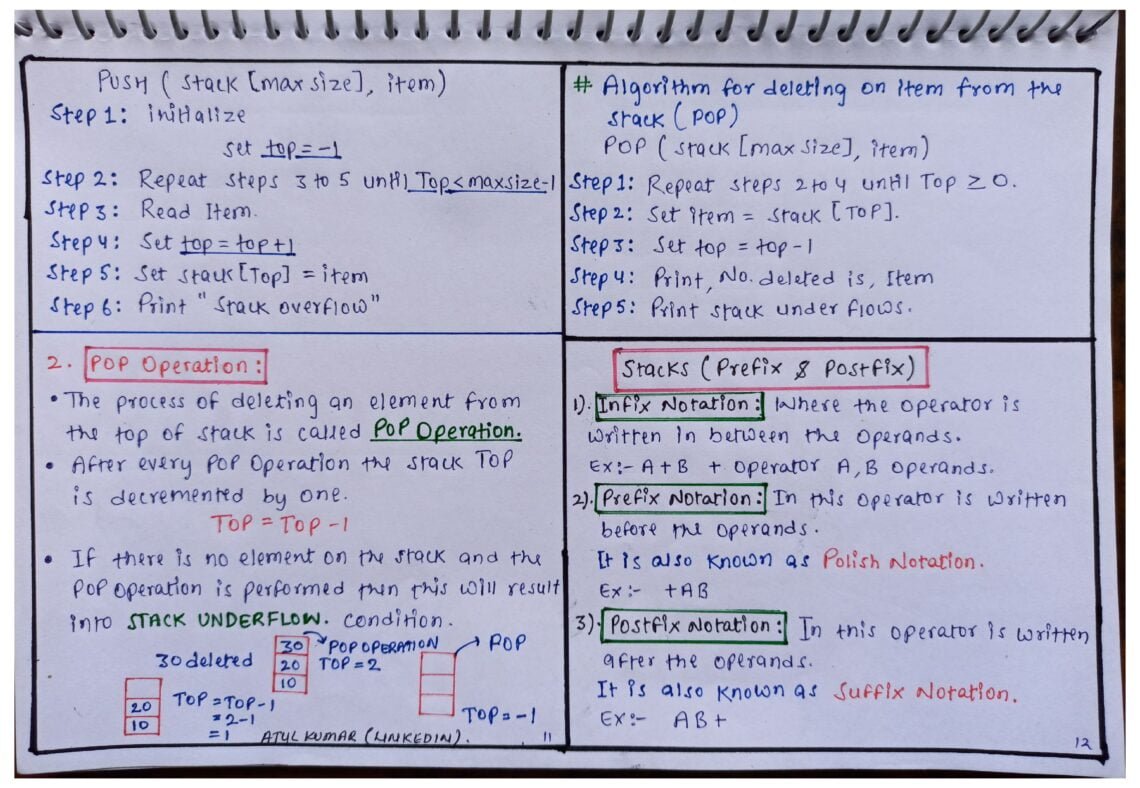 PUSH ( stack [max size], item)
Step 1: initialize
set top = -1
Step 2: Repeat steps 3 to 5 until Top < maxsize-1
Step 3: Read Item.
Step 4: Set top = top+1
Step 5: Set stack [Top] = item
Step 6: Print "Stack overflow"
2. POP Operation:
• The process of deleting an element from
the top of stack is called POP Operation.
• After every POP Operation the stack TOP
is decremented by one.
TOP = TOP -1
• If there is no element on the stack and the
POP operation is performed then this will result
into STACK UNDERFLOW. condition.
30 deleted
20
10
TOP = TOP-1
= 2-1
= 1
30
20
10
POP OPERATION
TOP = 2
POP
TOP = -1
ATUL KUMAR (LINKEDIN).
11
# Algorithm for deleting on item from the
stack ( POP)
POP ( stack [max size], item)
Step 1: Repeat steps 2 to 4 until Top ≥ 0.
Step 2: Set item = stack [TOP].
Step 3: Set top = top-1
Step 4: Print, No. deleted is, Item
Step 5: Print stack under flows.
Stacks ( Prefix & Postfix)
1). Infix Notation: Where the operator is
written in between the operands.
Ex:- A+B + operator A, B operands.
2). Prefix Notation: In this operator is written
before the operands.
It is also known as Polish Notation.
Ex:- +AB
3). Postfix Notation: In this operator is written
after the operands.
It is also known as Suffix Notation.
Ex:- AB+
12